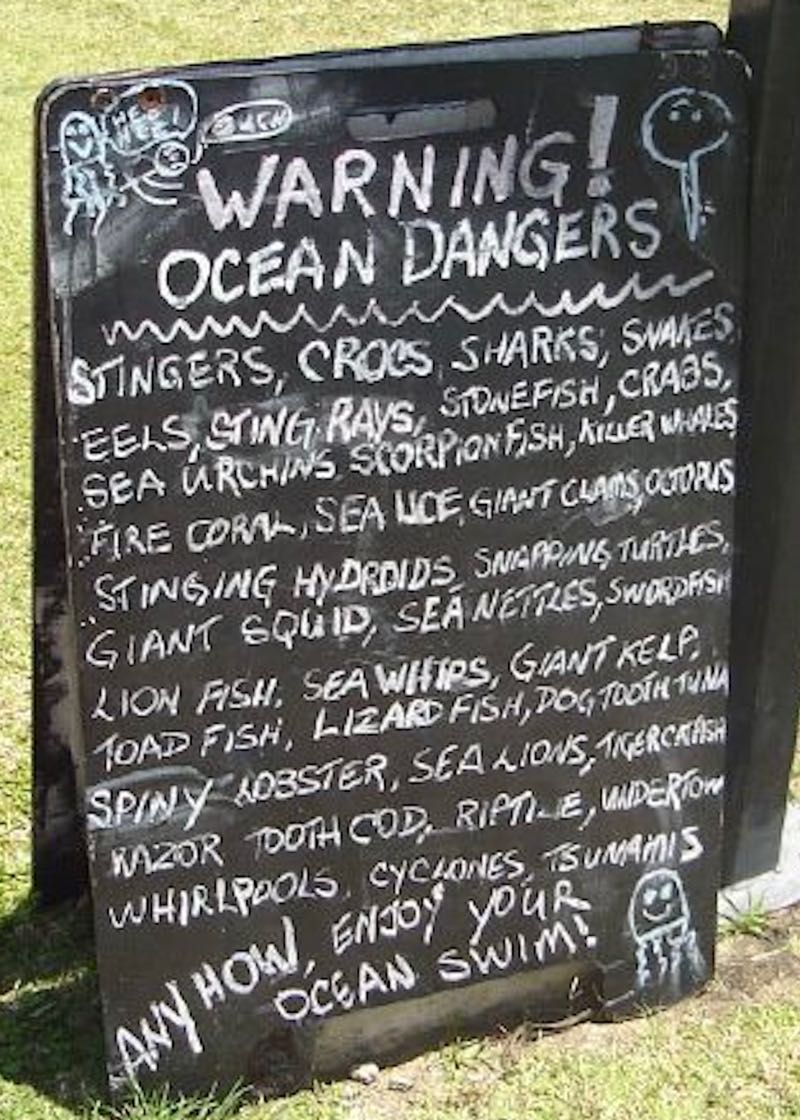 HEE HEE!
OUCH
WARNING!
OCEAN DANGERS
STINGERS, CROCS, SHARKS, SNAKES,
EELS, STING RAYS, STONEFISH, CRABS,
SEA URCHINS, SCORPION FISH, KILLER WHALES
FIRE CORAL, SEA LICE, GIANT CLAMS, OCTOPUS
STINGING HYDROIDS, SNAPPING TURTLES,
GIANT SQUID, SEA NETTLES, SWORDFISH
LION FISH, SEA WHIPS, GIANT KELP,
TOAD FISH, LIZARD FISH, DOG TOOTH TUNA
SPINY LOBSTER, SEA LIONS, TIGER CATFISH
RAZOR TOOTH COD, RIPTIDE, UNDERTOW
WHIRLPOOLS, CYCLONES, TSUNAMIS
ANYHOW, ENJOY YOUR
OCEAN SWIM!